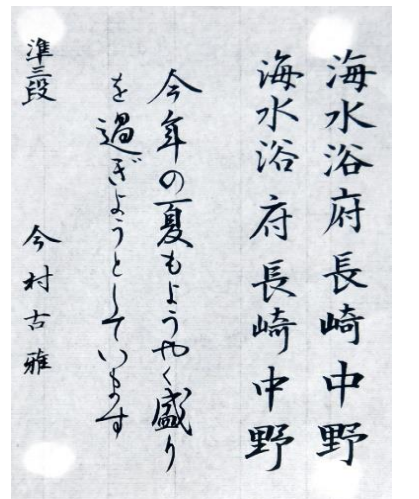 海水浴府長崎中野
海水浴府長崎中野
今年の夏もようやく盛り
を過ぎようとしています
準三段 今村古雅